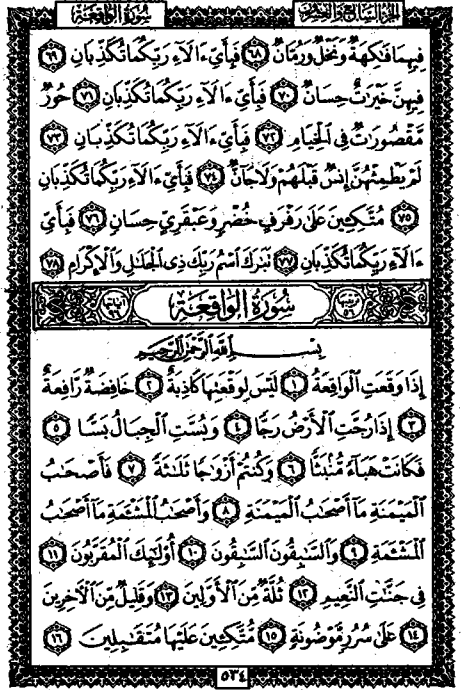 الجزء السابع والعشرون سورة الواقعة
فِيهِمَا فَٰكِهَةٌ وَنَخْلٌ وَرُمَّانٌ ٦٨ فَبِأَيِّ ءَالَآءِ رَبِّكُمَا تُكَذِّبَانِ ٦٩
فِيهِنَّ خَيْرَٰتٌ حِسَانٌ ٧٠ فَبِأَيِّ ءَالَآءِ رَبِّكُمَا تُكَذِّبَانِ ٧١ حُورٌ
مَّقْصُورَٰتٌ فِى الْخِيَامِ ٧٢ فَبِأَيِّ ءَالَآءِ رَبِّكُمَا تُكَذِّبَانِ ٧٣
لَمْ يَطْمِثْهُنَّ إِنسٌ قَبْلَهُمْ وَلَا جَآنٌّ ٧٤ فَبِأَيِّ ءَالَآءِ رَبِّكُمَا تُكَذِّبَانِ
٧٥ مُتَّكِئِينَ عَلَىٰ رَفْرَفٍ خُضْرٍ وَعَبْقَرِيٍّ حِسَانٍ ٧٦ فَبِأَيِّ
ءَالَآءِ رَبِّكُمَا تُكَذِّبَانِ ٧٧ تَبَٰرَكَ اسْمُ رَبِّكَ ذِى الْجَلَٰلِ وَالْإِكْرَامِ ٧٨
ترتيبها ٥٦ سُورَةُ الْوَاقِعَةِ آياتها ٩٦
بِسْمِ اللَّهِ الرَّحْمَٰنِ الرَّحِيمِ
إِذَا وَقَعَتِ الْوَاقِعَةُ ١ لَيْسَ لِوَقْعَتِهَا كَاذِبَةٌ ٢ خَافِضَةٌ رَّافِعَةٌ
٣ إِذَا رُجَّتِ الْأَرْضُ رَجًّا ٤ وَبُسَّتِ الْجِبَالُ بَسًّا ٥
فَكَانَتْ هَبَآءً مُّنۢبَثًّا ٦ وَكُنتُمْ أَزْوَٰجًا ثَلَٰثَةً ٧ فَأَصْحَٰبُ
الْمَيْمَنَةِ مَآ أَصْحَٰبُ الْمَيْمَنَةِ ٨ وَأَصْحَٰبُ الْمَشْـَٔمَةِ مَآ أَصْحَٰبُ
الْمَشْـَٔمَةِ ٩ وَالسَّٰبِقُونَ السَّٰبِقُونَ ١٠ أُو۟لَٰٓئِكَ الْمُقَرَّبُونَ ١١
فِى جَنَّٰتِ النَّعِيمِ ١٢ ثُلَّةٌ مِّنَ الْأَوَّلِينَ ١٣ وَقَلِيلٌ مِّنَ الْءَاخِرِينَ
١٤ عَلَىٰ سُرُرٍ مَّوْضُونَةٍ ١٥ مُّتَّكِئِينَ عَلَيْهَا مُتَقَٰبِلِينَ ١٦
٥٣٤